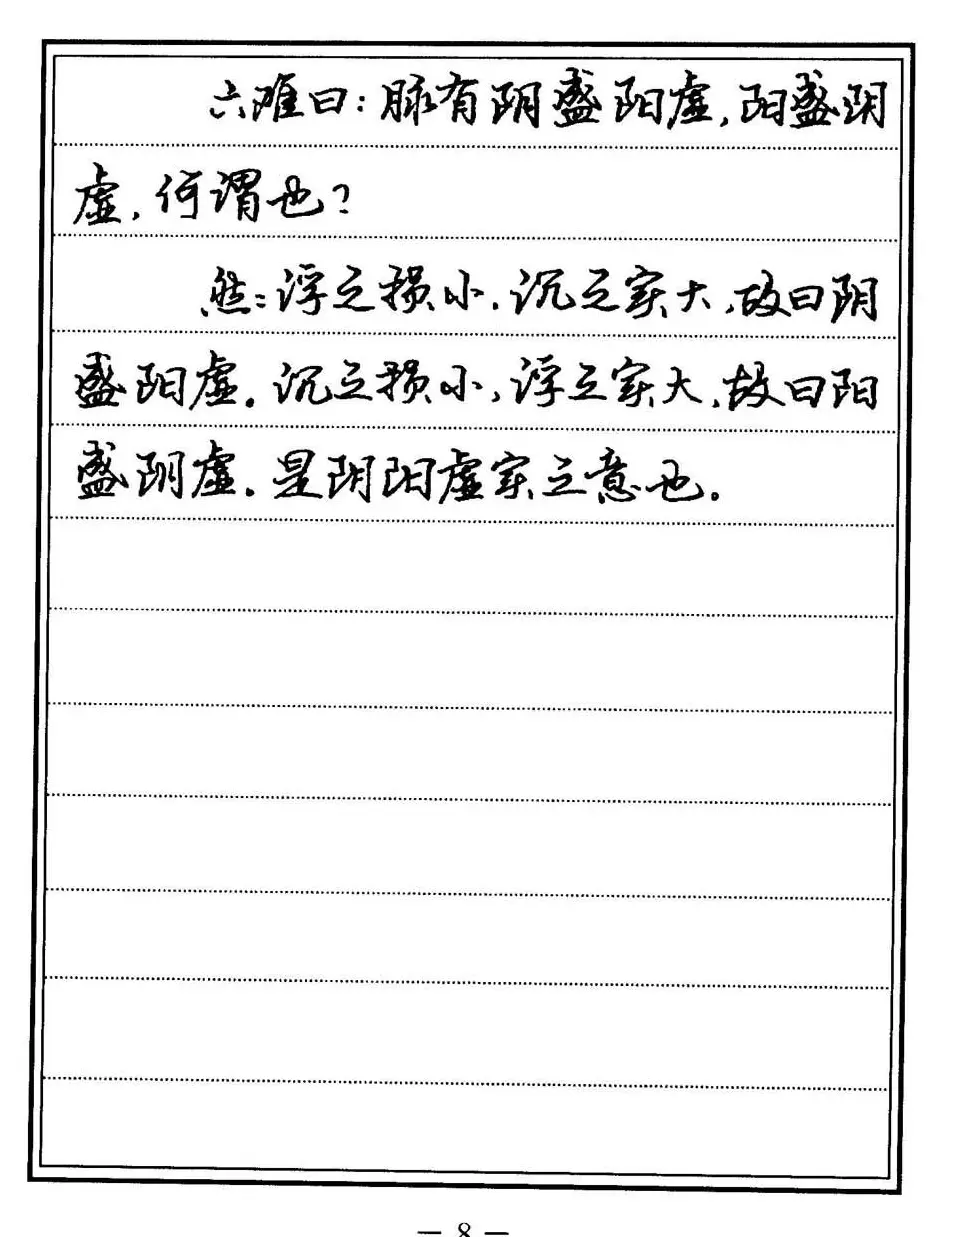 六难曰：脉有阴盛阳虚，阳盛阴
虚，何谓也？
然：浮之损小，沉之实大，故曰阴
盛阳虚。沉之损小，浮之实大，故曰阳
盛阴虚。是阴阳虚实之意也。
— 8 —